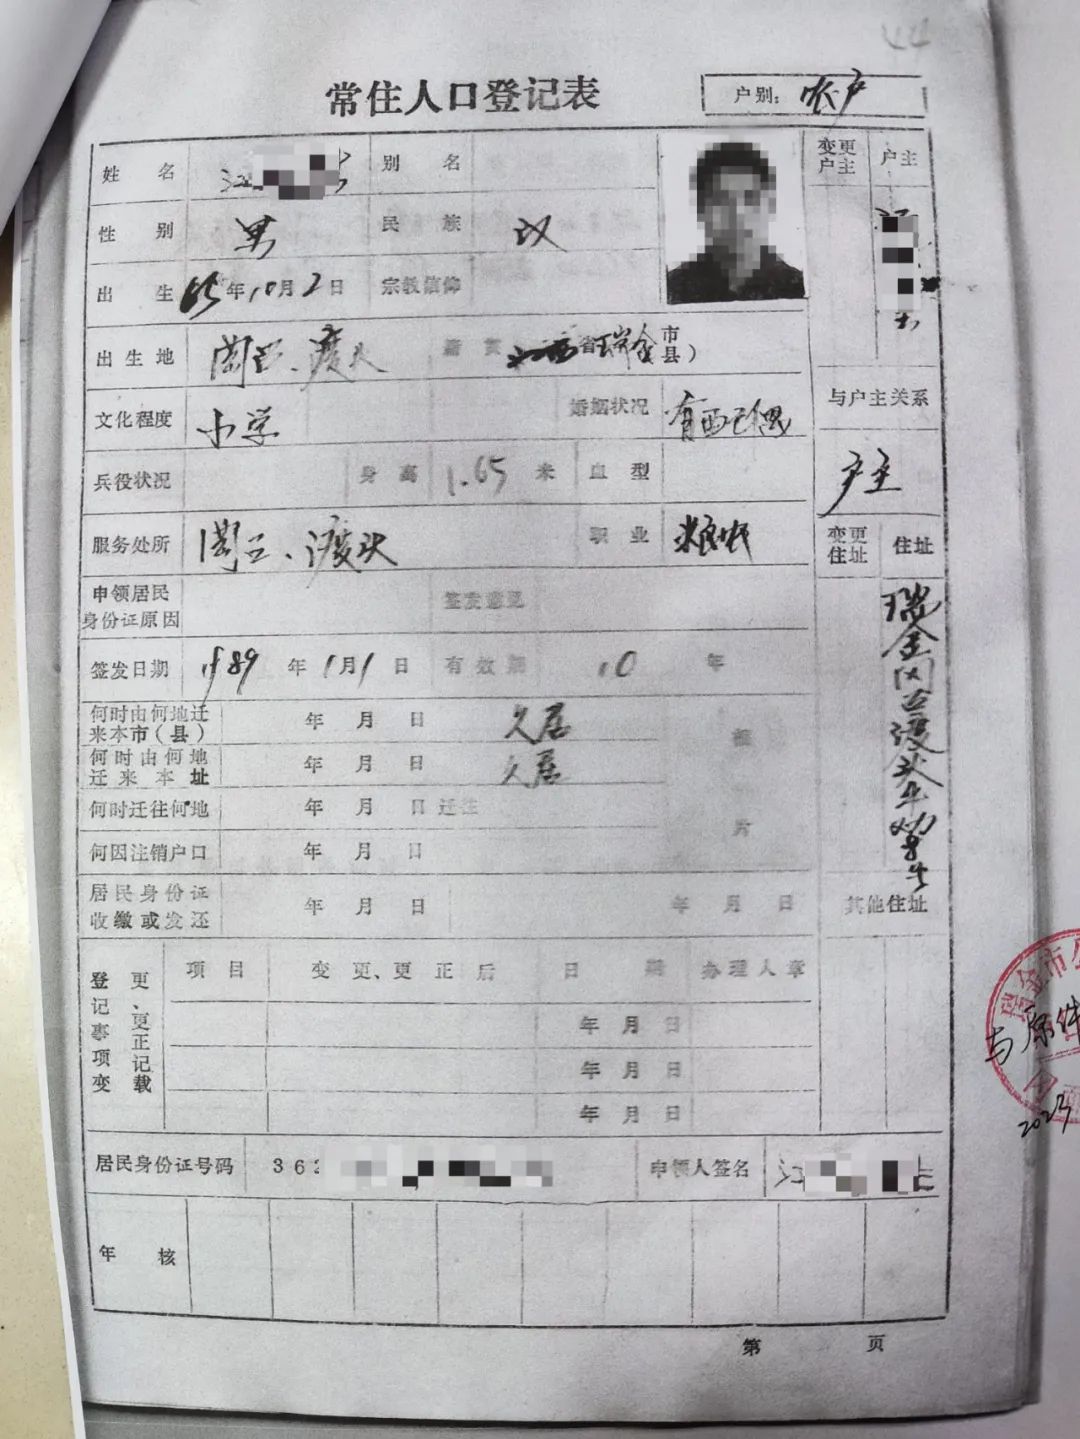 44
常住人口登记表
户别：农户
姓名 江 别名
变更户主 户主
性别 男 民族 汉
出生 65年10月2日 宗教信仰
出生地 渡头 籍贯 江西省瑞金市县）
文化程度 小学 婚姻状况 有配偶
与户主关系
户主
兵役状况 身高 1.65米 血型
服务处所 渡头 职业 粮农
变更住址 住址
瑞金 渡头
申领居民身份证原因 签发意见
签发日期 1989年1月1日 有效期 10年
何时由何地迁来本市（县） 年 月 日 久居
何时由何地迁来本址 年 月 日 久居
何时迁往何地 年 月 日 迁往
何因注销户口 年 月 日
居民身份证收缴或发还 年 月 日 年 月 日
其他住址
登记事项变更、更正记载
项目 变更、更正后 日期 办理人章
年 月 日
年 月 日
年 月 日
居民身份证号码 362 申领人签名 江
年核
第 页
瑞金市公
与原件
2023